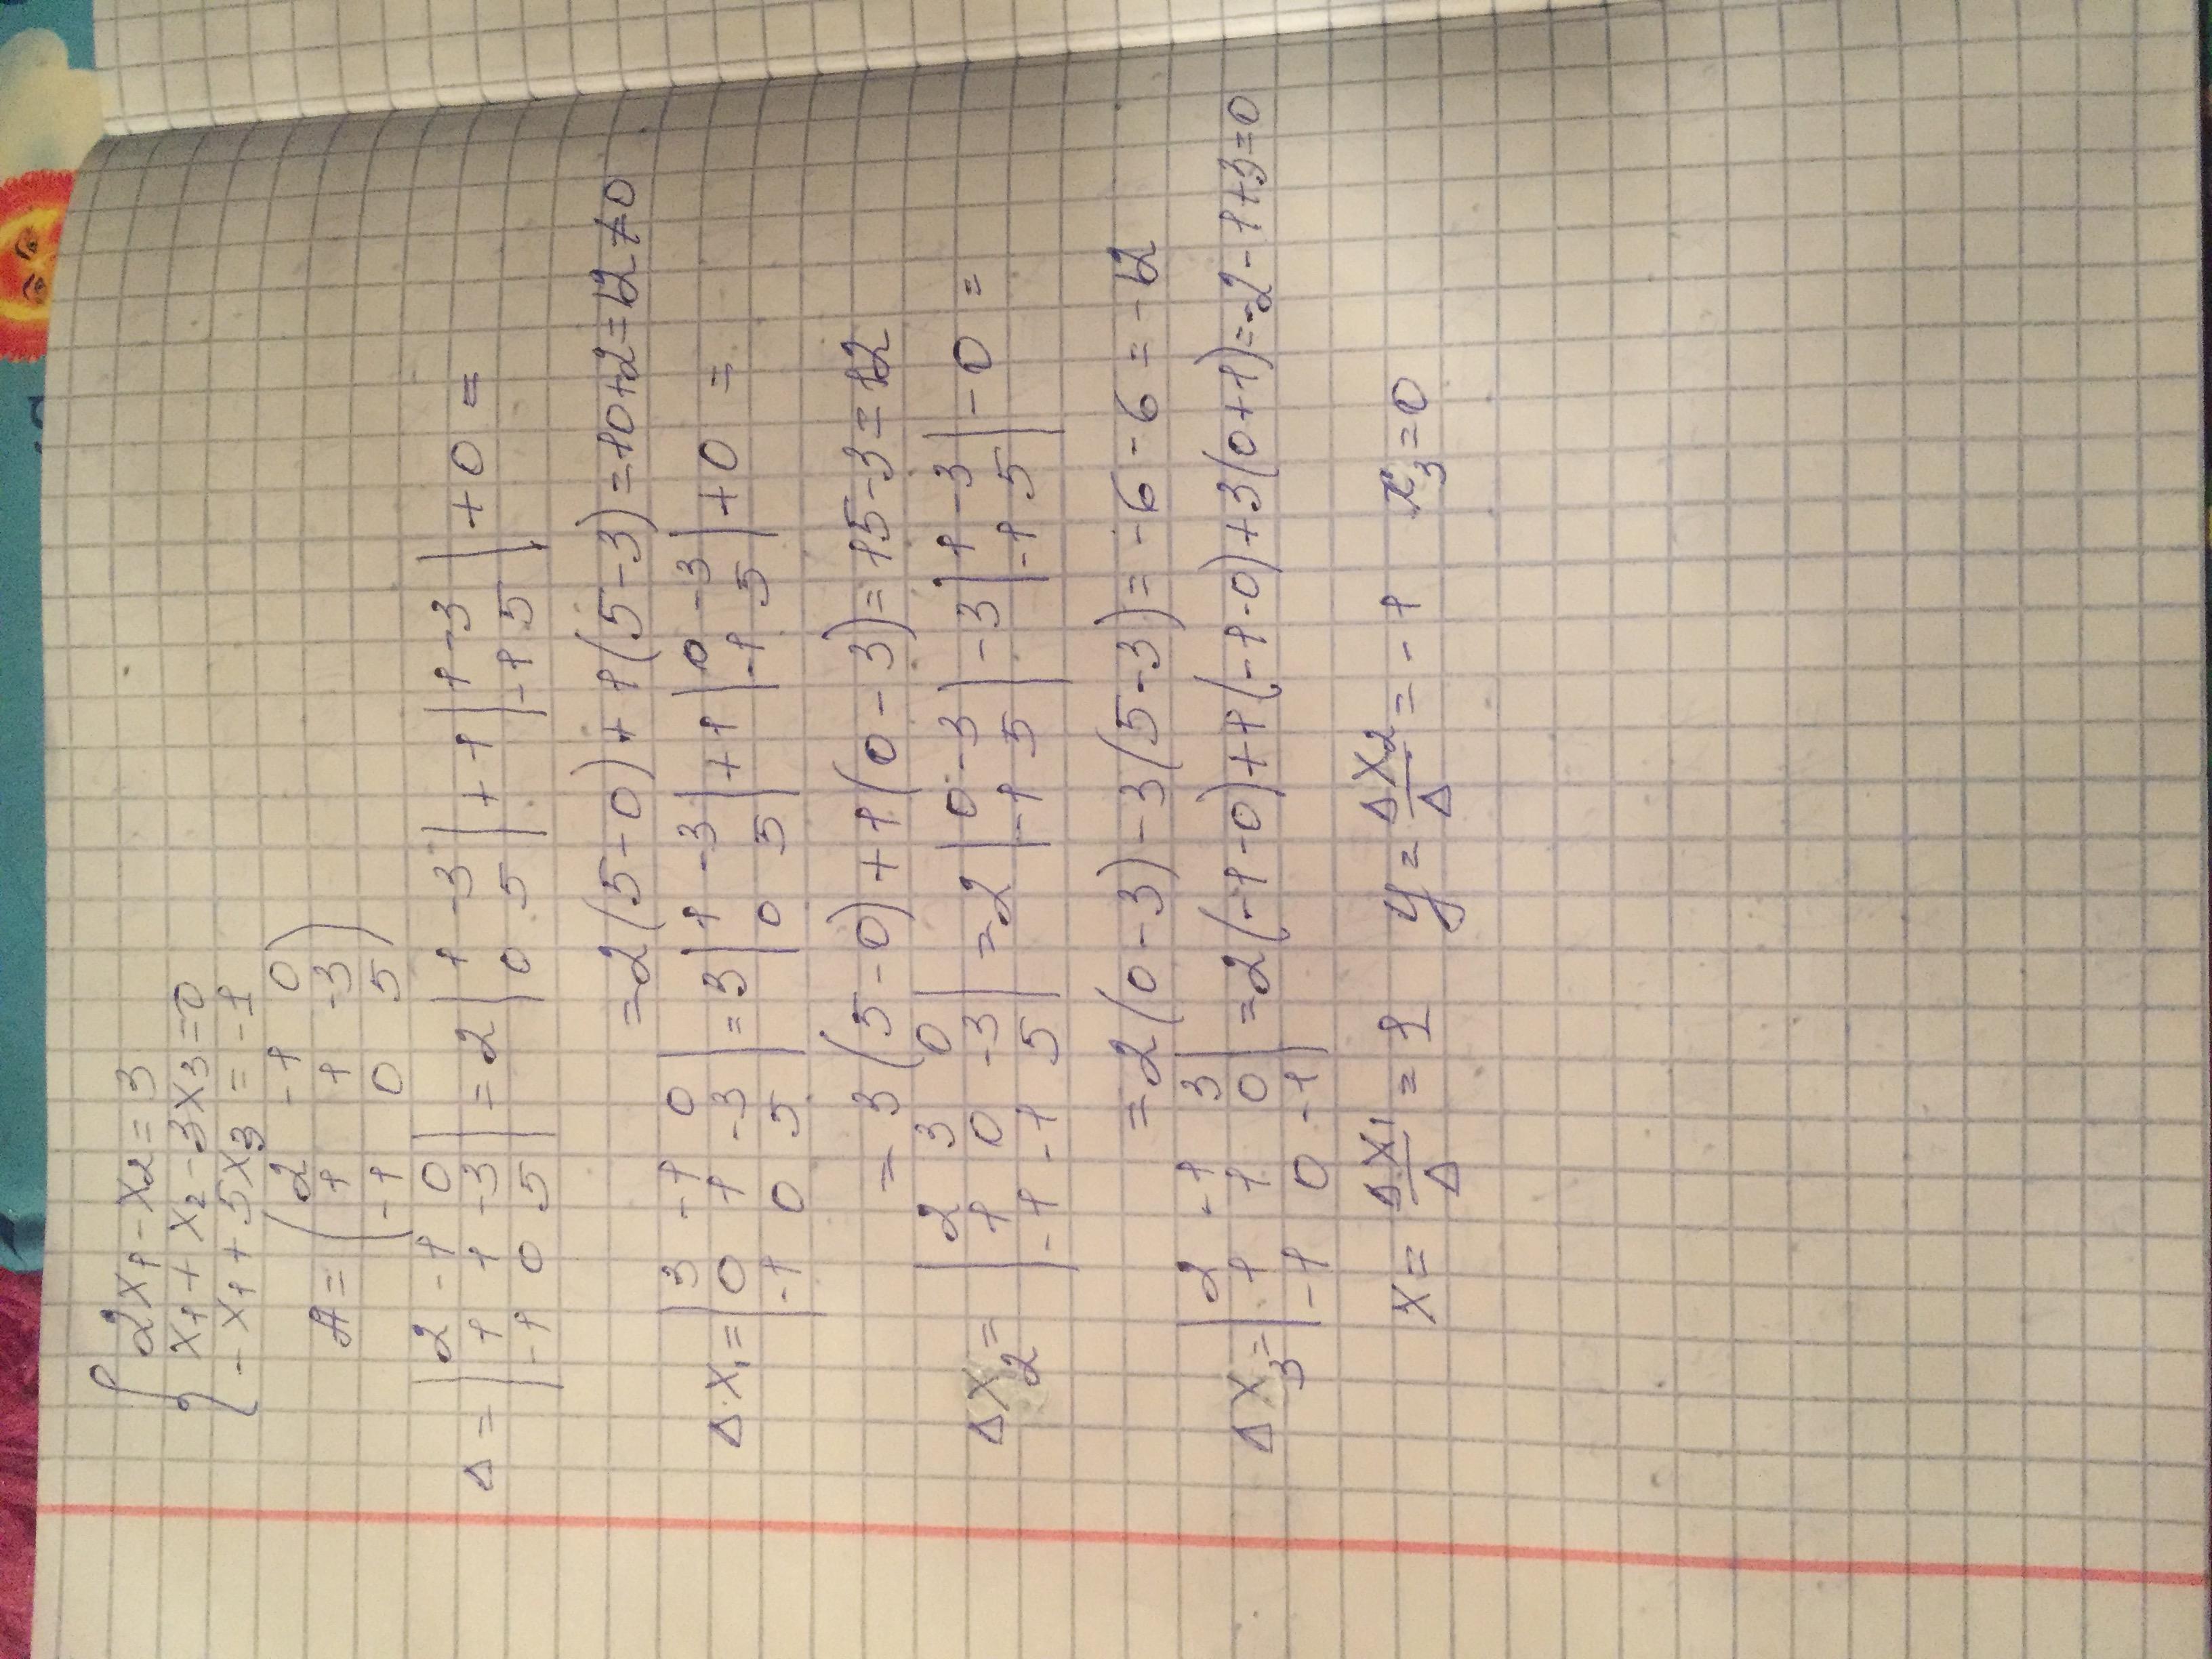 { 2x1 - x2 = 3
x1 + x2 - 3x3 = 0
- x1 + 5x3 = -1
A = ( 2 -1 0
1 1 -3
-1 0 5 )
Δ = | 2 -1 0
1 1 -3
-1 0 5 | = 2 | 1 -3
0 5 | + 1 | 1 -3
-1 5 | + 0 =
= 2(5-0) + 1(5-3) = 10+2 = 12 ≠ 0
Δx1 = | 3 -1 0
0 1 -3
-1 0 5 | = 3 | 1 -3
0 5 | + 1 | 0 -3
-1 5 | + 0 =
= 3(5-0) + 1(0-3) = 15-3 = 12
Δx2 = | 2 3 0
1 0 -3
-1 -1 5 | = 2 | 0 -3
-1 5 | - 3 | 1 -3
-1 5 | - 0 =
= 2(0-3) - 3(5-3) = -6-6 = -12
Δx3 = | 2 -1 3
1 1 0
-1 0 -1 | = 2(-1-0) + 1(-1-0) + 3(0+1) = -2-1+3 = 0
x = Δx1/Δ = 1 y = Δx2/Δ = -1 x3 = 0